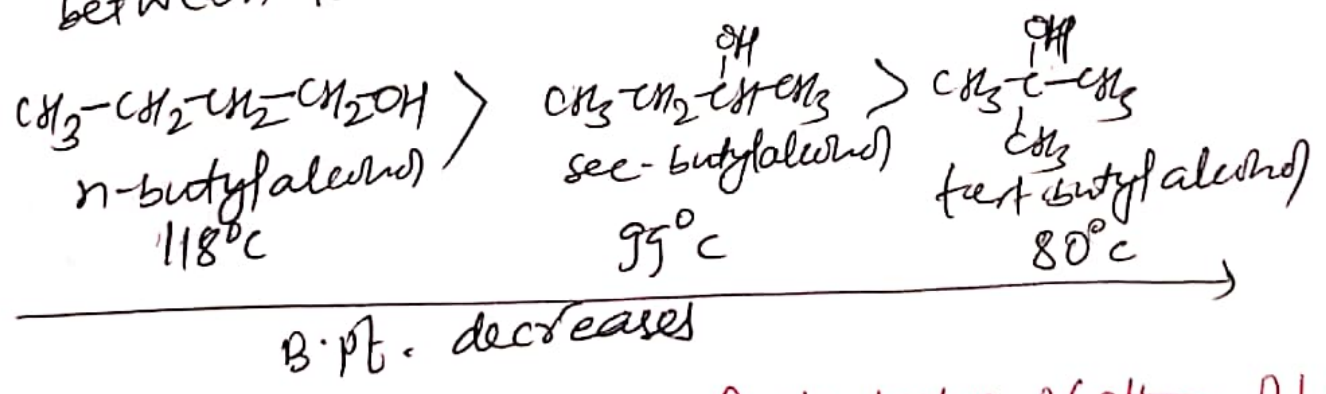 between
OH OH
CH3-CH2-CH2-CH2-OH > CH3-CH2-CH-CH3 > CH3-C-CH3
CH3
n-butylalcohol sec-butylalcohol tert-butylalcohol
118°C 95°C 80°C
B.pt. decreases